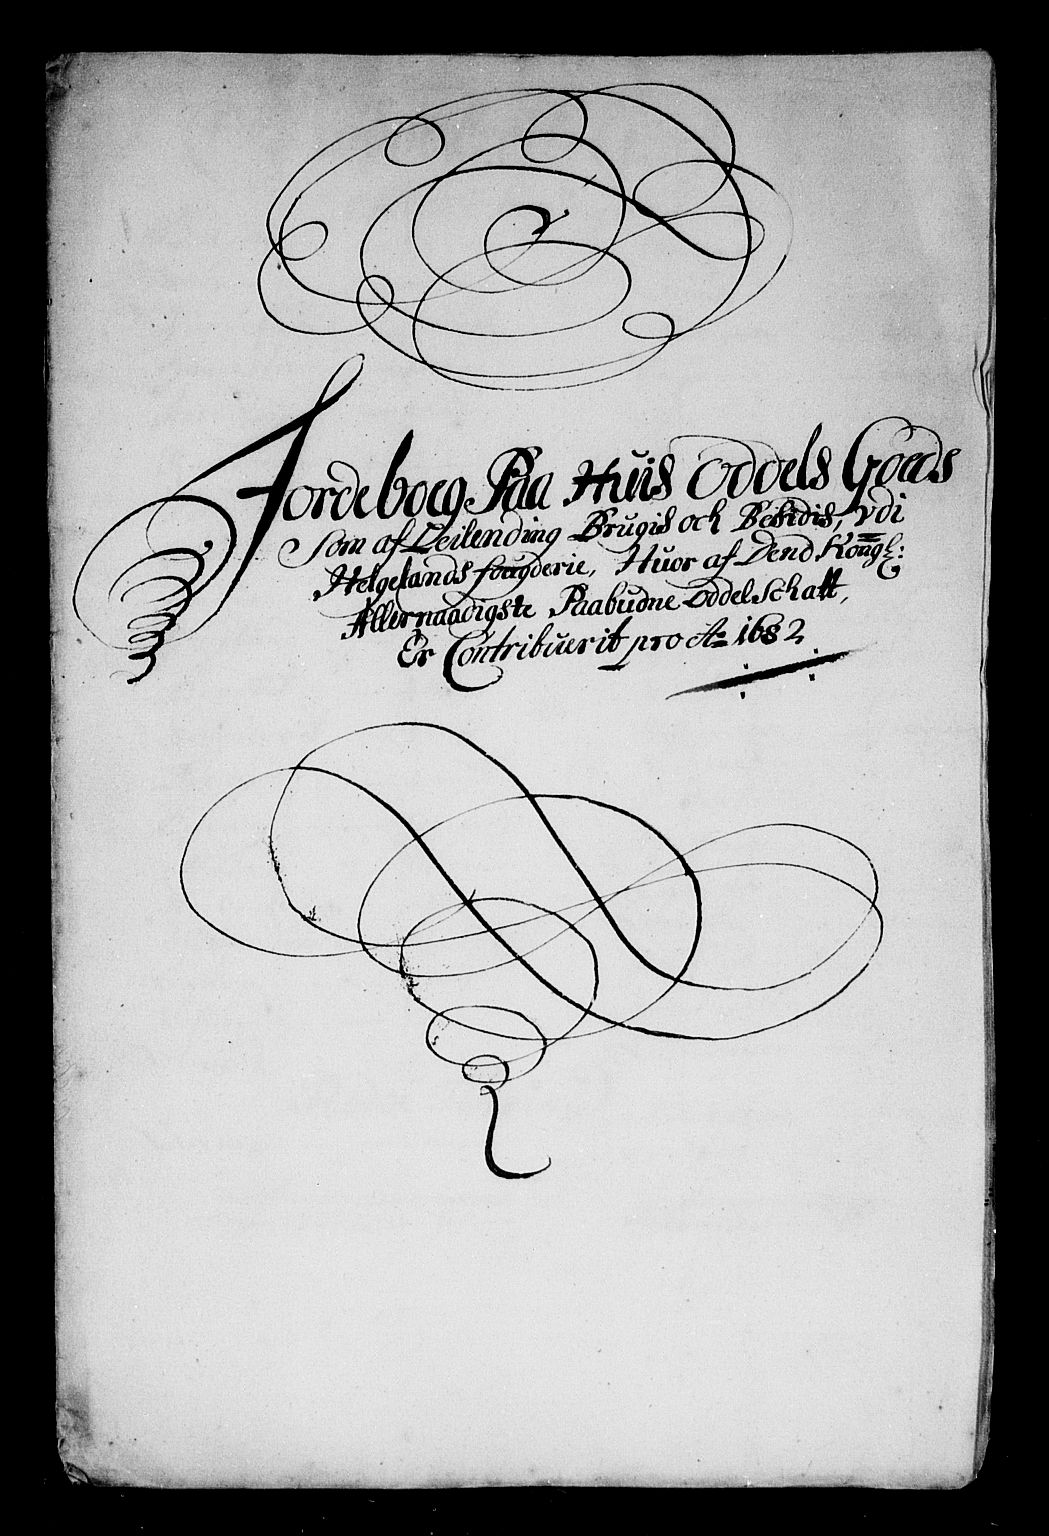 Jordeboeg Paa Huis Oddels Goeds
som af Leilending Brugis och Besidis, vdi
Helgelands fougderie, Huor af Dend Kongl:
Allernaadigste Paabudne Oddel Schatt,
Er Contribuerit pro Ao 1682